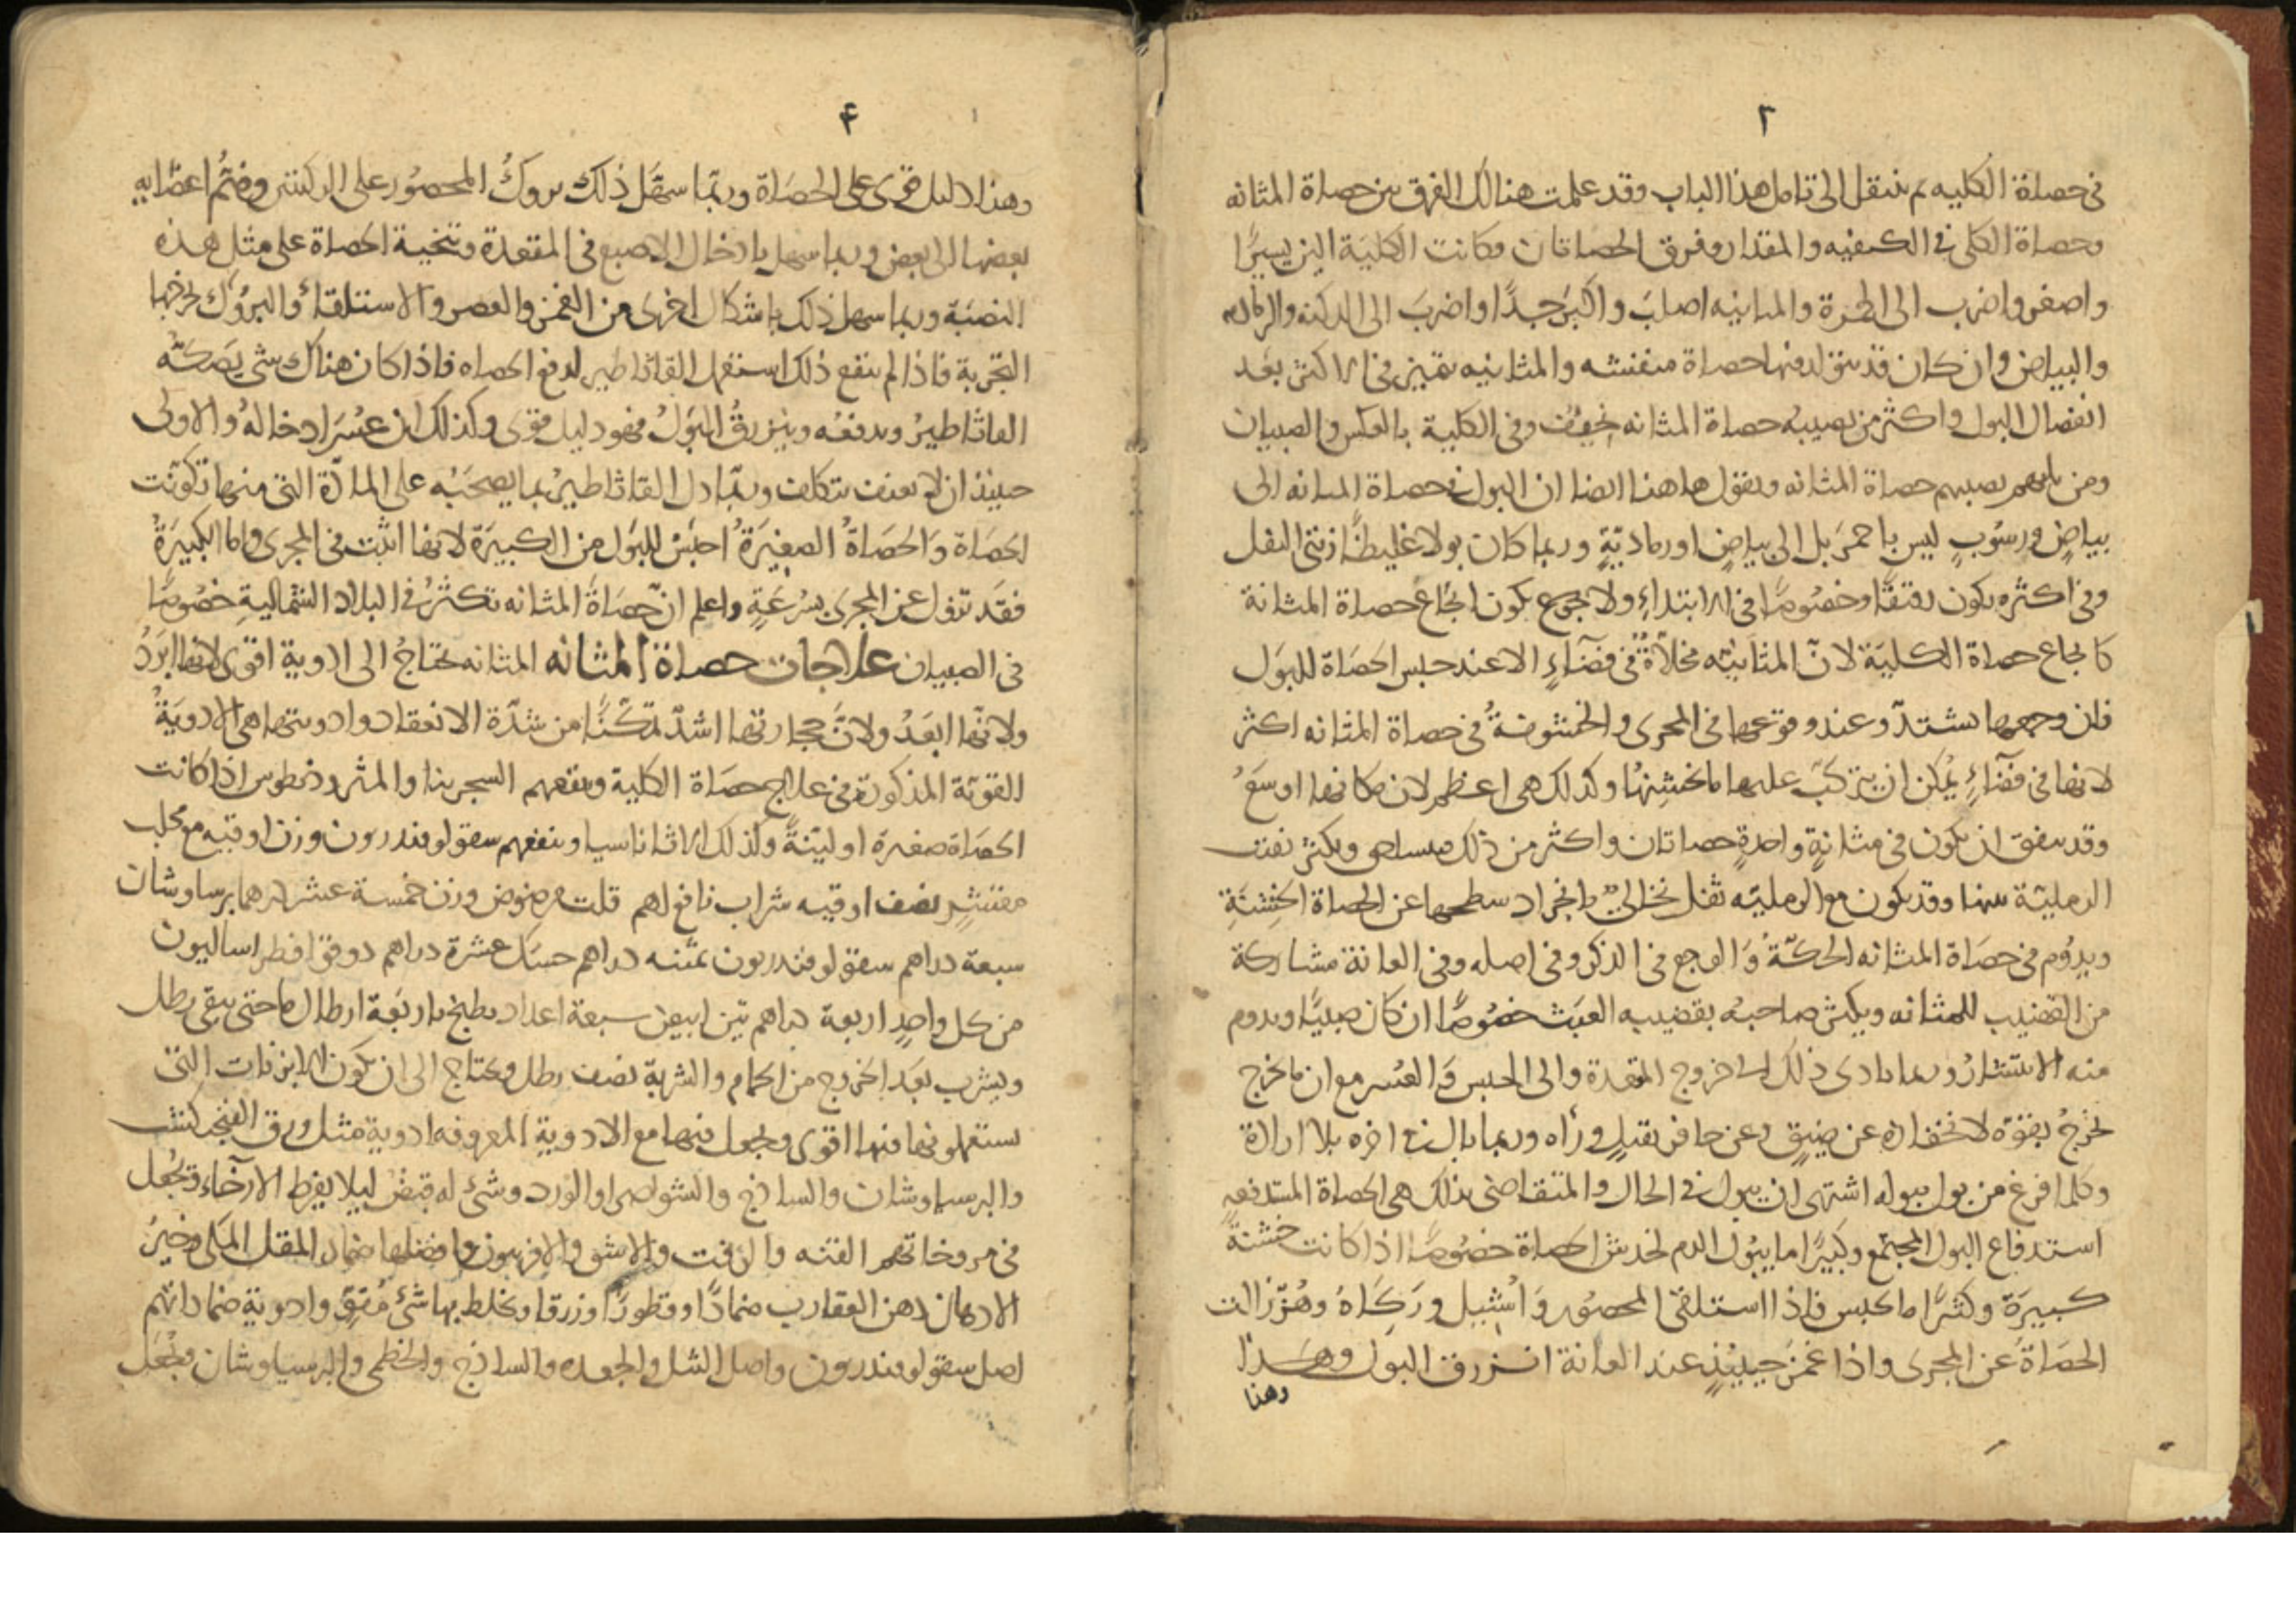 ٢
في حصاة الكليه ثم ينتقل الى تامل هذا الباب وقد علمت هنالك الفرق بين حصاة المثانه
وحصاة الكلى في الكيفيه والمقدار وفرق الحصاتان وكانت الكليَة الين يسيرًا
واصغر واضرب الى الحمرة والمثانيه اصلبَ واكبرَ جدًا واضربَ الى الدكنه والرماديه
والبياض وان كان قد يتولد فيها حصاة متفتته والمثانيه تتميز في الاكثر بعَد
انفصال البول واكثر من يصيبُه حصاة المثانه نحيفٌ وفي الكلية بالعكس والصبيان
ومن يليهم يصيبهم حصاة المثانه ونقول هاهنا ايضا ان البول في حصاة المثانه الى
بياضٍ ورسُوبٍ ليس باحمرَ بل الى بياضٍ او رماديّةٍ وربما كان بولا غليظًا زيتى الثفل
وفي اكثره يكون رقيقًا وخصُوصًا في الابتداءِ ولا يكون ايجاع حصاة المثانة
كايجاع حصاة الكليَة لانّ المثانيّه مخلاّةٌ في فضَآءٍ الا عند حبس الحصَاة للبوَل
فان وجعها يشتدّ وعند وقوعها في المجرى والخشُونةُ في حصاة المثانه اكثر
لانها في فضَآءٍ يُمكن ان يتركبّ عليها ما يخشِنهُا وكذلك هي اعظم لان مكانها اوسَعُ
وقد يتفق ان يكون في مثانةٍ واحدةٍ حصاتان واكثر من ذلك ويكثر تفتت
الرمليّة منها وقد يكون مع الرمليّه ثفل نخاليٌّ بانجراد سطحها عن الحصاة الخِشنَةِ
ويدُوم في حصَاة المثانه الحكّةُ وَالوجع في الذكر وفي اصله وفي العانة مشاركة
من القضيب للمثانه ويكثر صاحبُه بقضيبه العبَث خصُوصًا ان كان صبيًا ويدوم
منه الانتشارُ وربما تادى ذلك الى خروج المقعدة والى الحبس وَالعُسر مع ان ما يخرج
يخرجُ بقوّة لانحفازه عن ضِيقٍ وعن حافز ثقيلٍ ورآه وربما بال في اخره بلا ارادة
وكلما فرغ من بول يبوله اشتهى ان يبول في الحال والمتقاضى بذلك هي الحصاة المستدفعةِ
استدفاع البول المجتمع وكثيرًا ما يبُول الدم لخدش الحصاة خصُوصًا اذا كانت خشنةً
كبيرَة وكثيرًا ما تحبس فاذا استلقى المحصُور وَاشيل وركَاهُ وهُزّ زالت
الحصَاةُ عن المجرى واذا غمزَ حينئذٍ عند العانة انزرق البول وهذا
وهذا
۴
وهذا دليل قوى على الحصَاة وربما سهّل ذلك بروكُ المحصُور على الركبتين وضمُّ اعضايه
بعضها الى بعض وربما سهل بادخال الاصبع في المقعدة وتنحية الحصاة على مثل هذه
النصبَة وربما سهل ذلك باشكال اخرى من الغمز والعصر والاستلقاءُ والبروُك يخرجها
التجربة فاذا لم ينفع ذلك استعمل القاثاطير لدفع الحصاه فاذا كان هناك شى يصَكّه
القاثاطيرُ ويدفعُه وينزرقُ البَولُ فهو دليل قوى وكذلك ان عسُرَ ادخالهُ والاولى
حينئذ ان لا يعنف بتكلف وربمّا دل القاثاطيرُ بما يصحَبُه على المادّة التي منها تكوّنت
الحصَاة وَالحصَاةُ الصغيرَةُ احبَسُ للبَول من الكبيرَة لانها اثبَت في المجرى واما الكبيرَةُ
فقَد تزول عن المجرى بسُرعَةٍ واعلم انّ حصَاةَ المثانه تكثرُ في البلاد الشماليةِ خصُوصًا
في الصبيان علاجات حصاة المثانه المثانه تحتاجُ الى ادوية اقوى لانها ابَردُ
ولانّها ابعَدُ ولانَّ حجارتها اشدّ تمكّنًا من شدّة الانعقاد وادويتها هي الادويَةُ
القويّة المذكورَة في علاج حصَاة الكلية وينفعهم السجرينا والمثروديطوس اذا كانت
الحصَاة صغيرة او ليّنَةً وكذلك الاثاناسيا وينفعهم سقولوفندريون وزن اوقيه مع محلب
مفتتٍ نصف اوقيه شراب نافع لهم قلت مرضوض وزن خمسة عشر درهما برساوشان
سبعة دراهم سقولوفندريون ثمنيه دراهم حسَك عشرة دراهم دوقو افطراساليون
من كل واحدٍ اربعة دراهم تين ابيض سبعة اعداد يطبخ باربعَة ارطال ما حتى يبقى رطل
ويشرب بعَد الخروج من الحمام والشربة نصف رطل ويحتاج الى ان تكون الابزنات التى
يستعملونها فيها اقوى ويجعل فيها مع الادوية المعروفه ادوية مثل ورق الفنجنكشت
والبرسياوشان والساذج والشواصرا والورد وشئ له قبضٌ ليلا يفرط الارخَاء ويجُعل
في مروخاتهم القنه والزفت والاشق والافربيون وافضلها ضماد المقل المكى وخيرُ
الادهان دهن العقارب ضمادًا وقطورًا وزرقا ويخلط بها شئ مُقوٍّ وادوية ضماداتهم
اصل سقولوفندريون واصل الشل والجعده والساذج والخطمى والبرسياوشان ويجُعَل